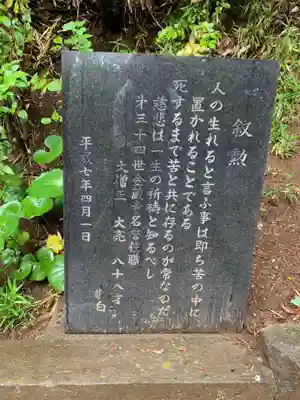 叙勲
人の生れると言ふ事は即ち苦の中に
置かれることである
死するまで苦と共に存るのが常なのだ
慈悲は一生の祈祷と知るべし
第三十四世金蔵寺名誉住職
大僧正 大亮 八十八才
敬白
平成七年四月一日